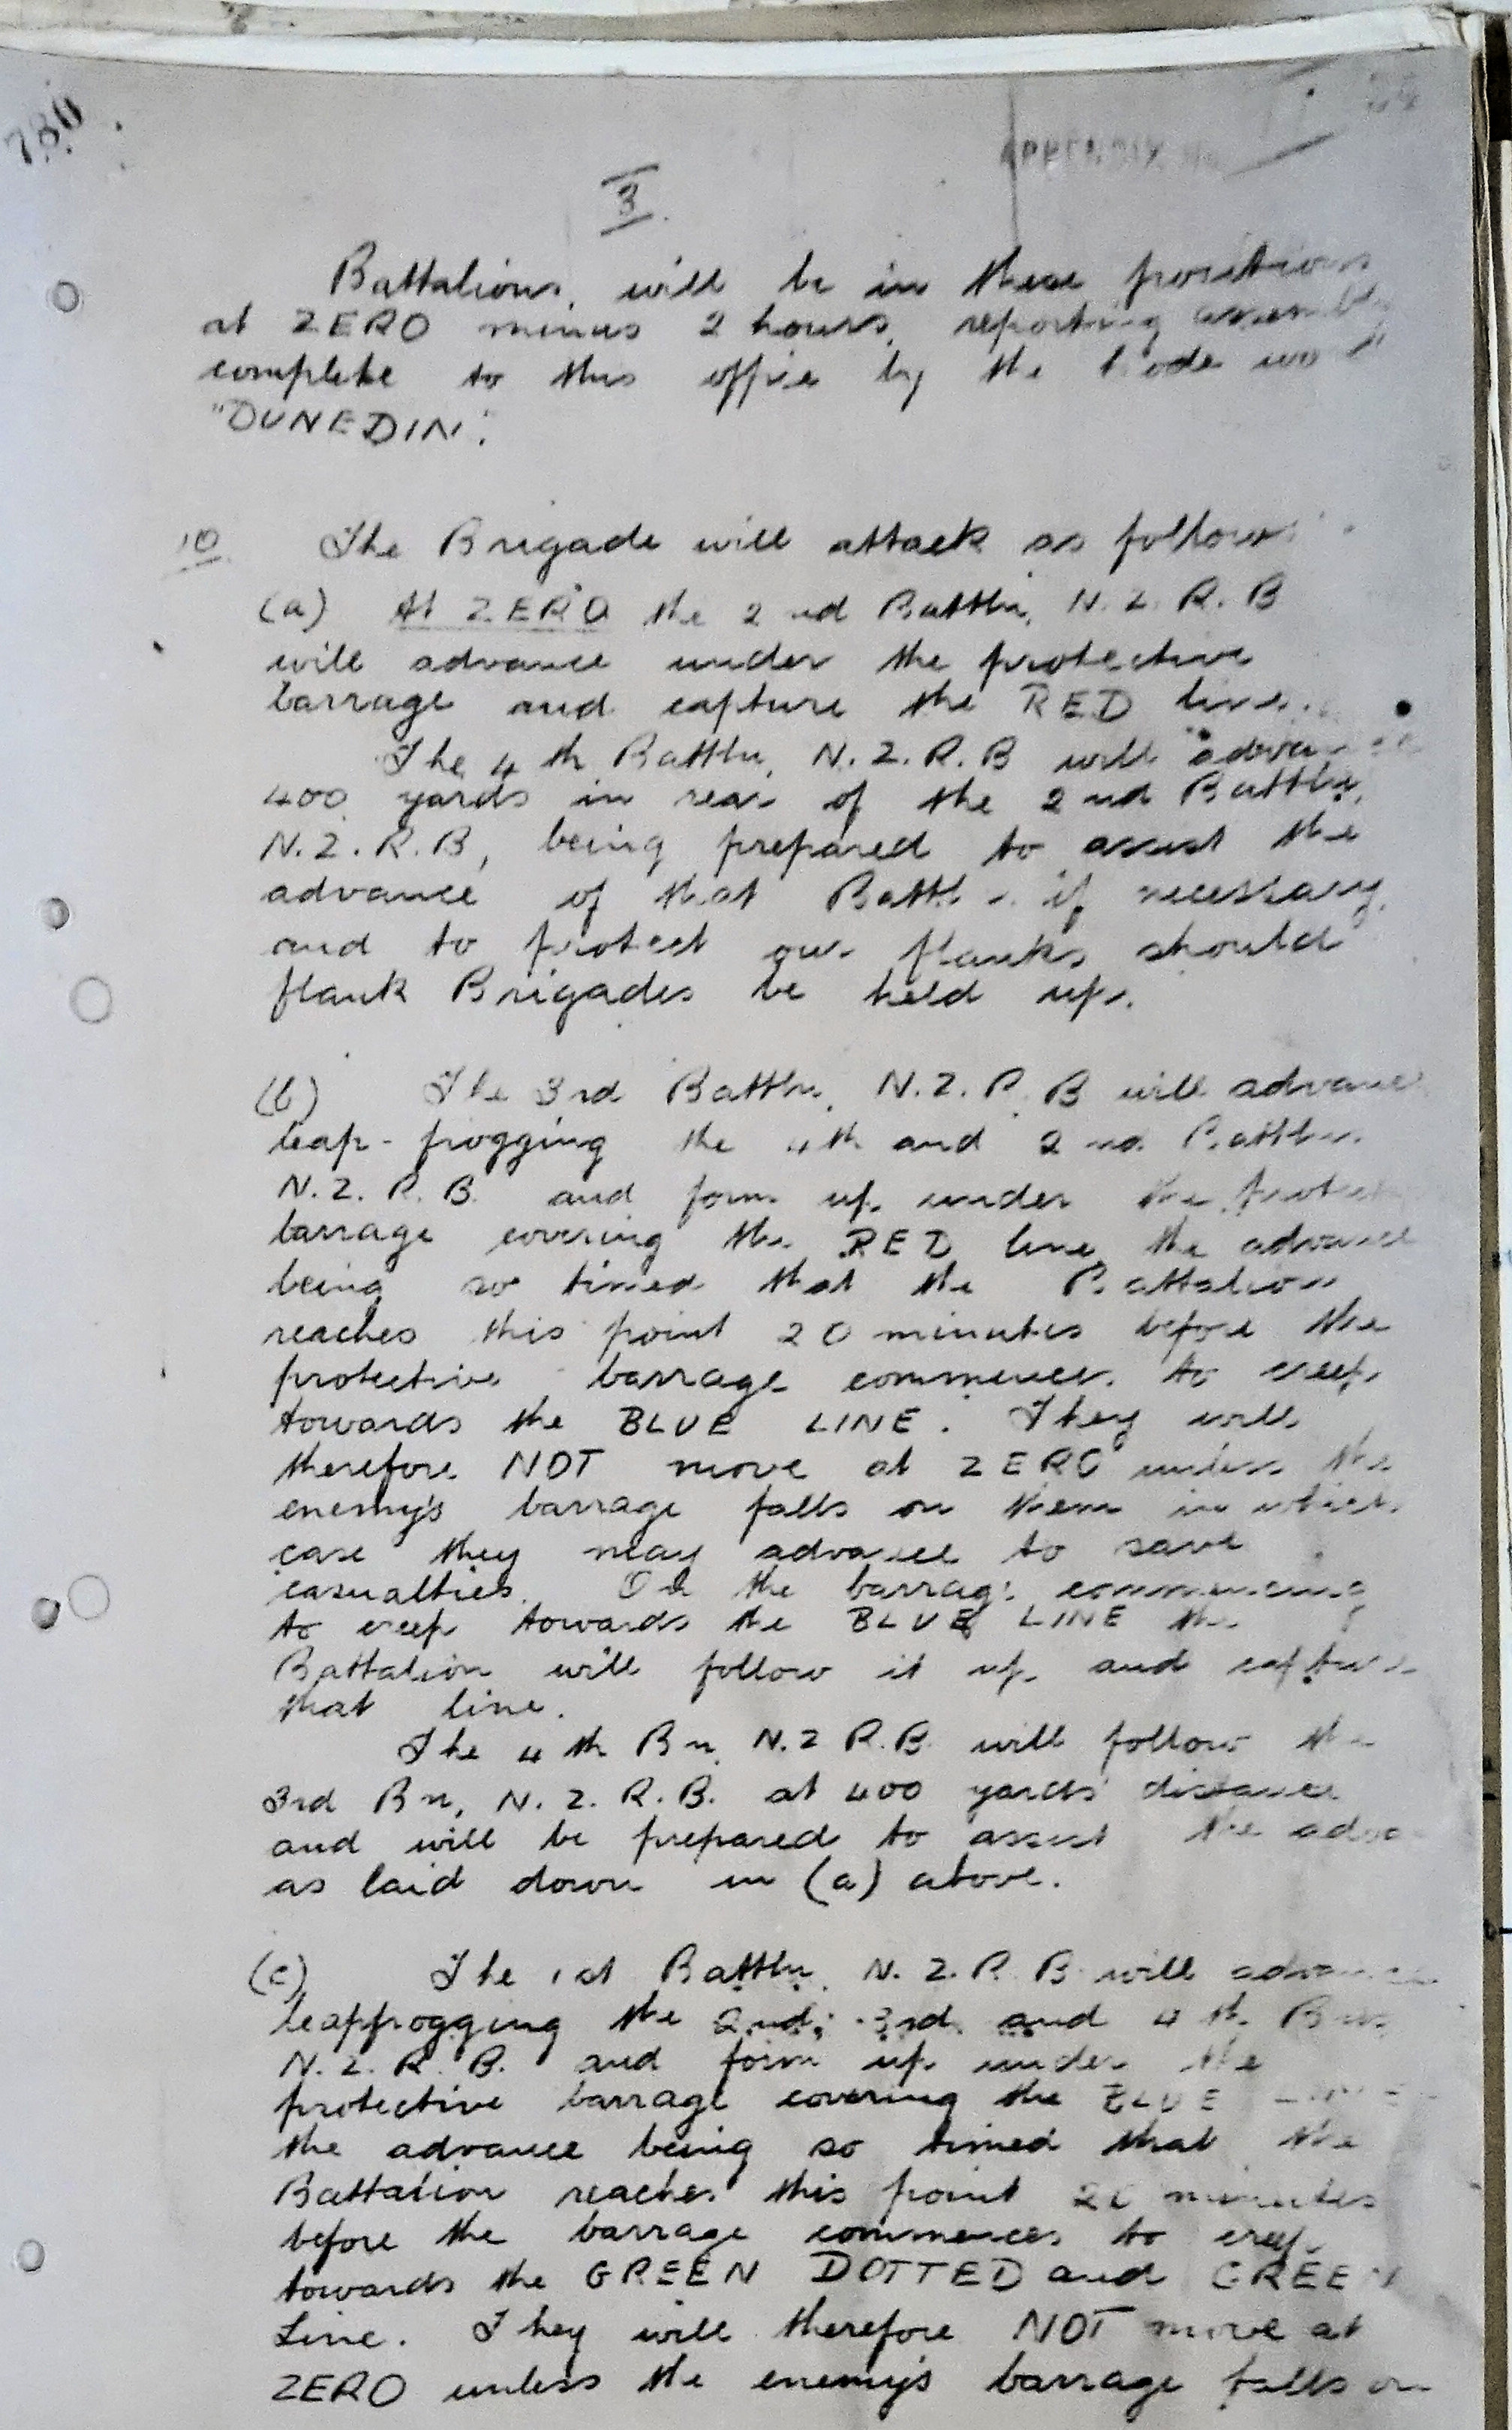 780
APPENDIX
3.
Battalions, will be in these positions
at ZERO minus 2 hours, reporting assembly
complete to this office by the code word
"DUNEDIN".
10. The Brigade will attack as follows:
(a) At ZERO the 2nd Battln, N.Z.R.B
will advance under the protective
barrage and capture the RED line.
The 4th Battln, N.Z.R.B will advance
400 yards in rear of the 2nd Battln,
N.Z.R.B, being prepared to assist the
advance of that Battln if necessary,
and to protect our flanks should
flank Brigades be held up.
(b) The 3rd Battln, N.Z.R.B will advance
leap-frogging the 4th and 2nd Battlns
N.Z.R.B. and form up under the
barrage covering the RED line, the advance
being so timed that the Battalion
reaches this point 20 minutes before the
protective barrage commences to creep
towards the BLUE LINE. They will
therefore NOT move at ZERO unless the
enemy's barrage falls on them in which
case they may advance to save
casualties. On the barrage commencing
to creep towards the BLUE LINE the
Battalion will follow it up and capture
that line.
The 4th Bn, N.Z R.B. will follow the
3rd Bn, N.Z.R.B. at 400 yards' distance
and will be prepared to assist the
as laid down in (a) above.
(c) The 1st Battln, N.Z.R.B will advance
leapfrogging the 2nd, 3rd and 4th Bns
N.Z.R.B. and form up under the
protective barrage covering the BLUE LINE
the advance being so timed that the
Battalion reaches this point 20 minutes
before the barrage commences to creep
towards the GREEN DOTTED and GREEN
Line. They will therefore NOT move at
ZERO unless the enemy's barrage falls on